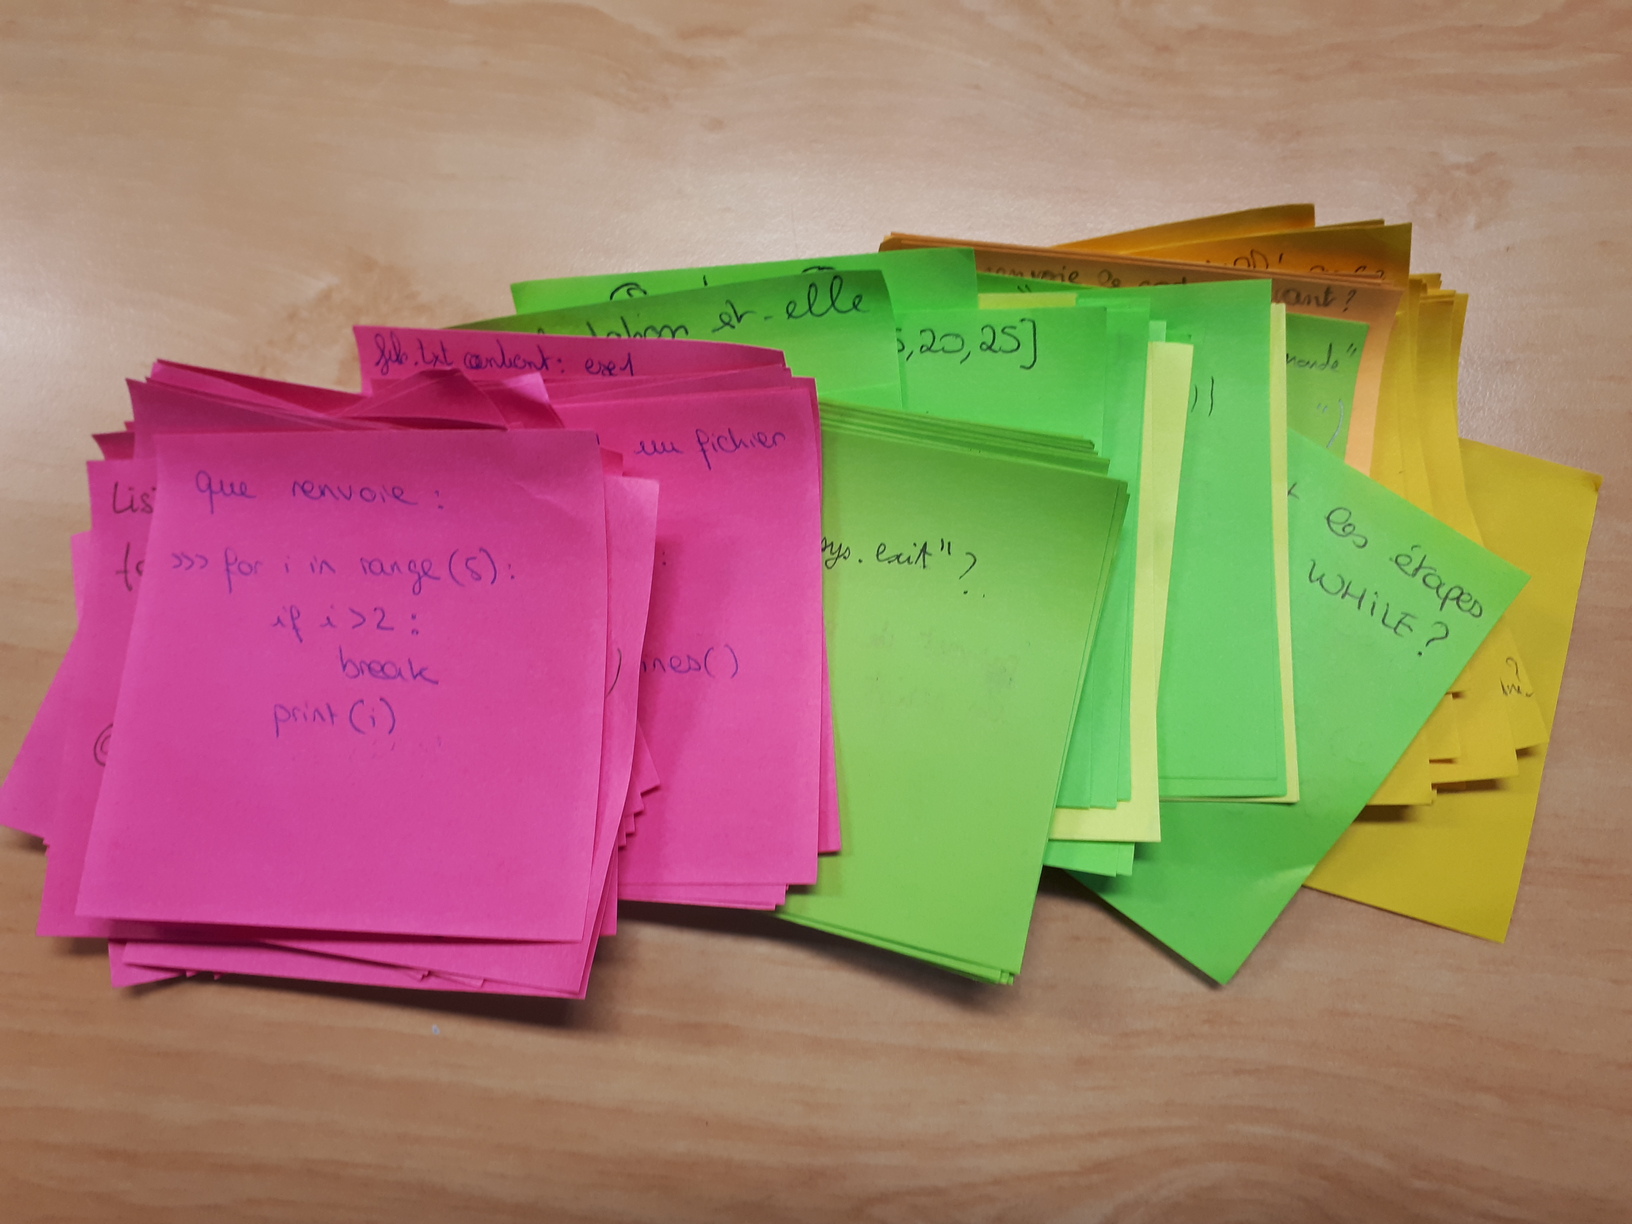 que renvoie :
>>> for i in range(5):
if i>2:
break
print(i)
fib.txt contient: exe1
un fichier
:
ines()
et-elle
5,20,25]
sys.exit"?
renvoie
ant?
monde"
")
les étapes
WHILE?
Lis